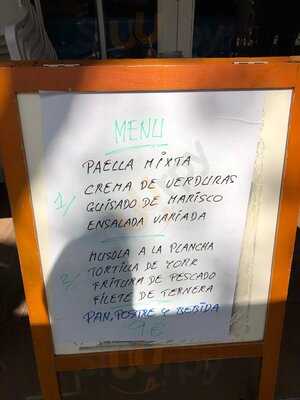 MENU
PAELLA MIXTA
CREMA DE VERDURAS
1/ GUISADO DE MARISCO
ENSALADA VARIADA
MUSOLA A LA PLANCHA
2/ TORTILLA DE YORK
FRITURA DE PESCADO
FILETE DE TERNERA
PAN, POSTRE Y BEBIDA
9€